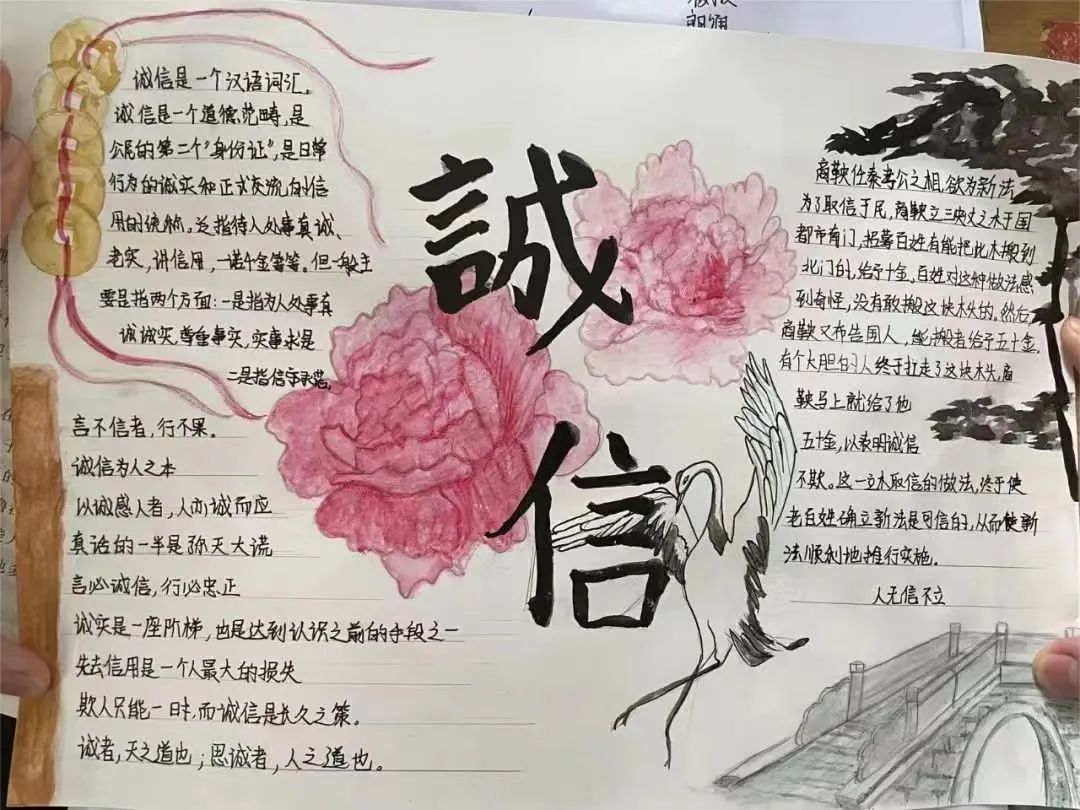 诚信是一个汉语词汇,
诚信是一个道德范畴,是
公民的第二个"身份证",是日常
行为的诚实和正式交流的信
用的统称。泛指待人处事真诚、
老实,讲信用,一诺千金等等。但一般主
要是指两个方面:一是指为人处事真
诚诚实,尊重事实,实事求是
二是指信守承诺。
言不信者,行不果。
诚信为人之本
以诚感人者,人亦诚而应
真话的一半是弥天大谎
言必诚信,行必忠正
诚实是一座阶梯,也是达到认识之前的手段之一
失去信用是一个人最大的损失
欺人只能一时,而诚信是长久之策。
诚者,天之道也;思诚者,人之道也。
誠
信
商鞅仕秦孝公之相,欲为新法
为了取信于民,商鞅立三丈之木于国
都市南门,招募百姓有能把此木搬到
北门的,给予十金。百姓对这种做法感
到奇怪,没有敢搬这块木头的。然后,
商鞅又布告国人,能搬者给予五十金。
有个大胆的人终于扛走了这块木头,商
鞅马上就给了他
五十金,以表明诚信
不欺。这一立木取信的做法,终于使
老百姓确立新法是可信的,从而使新
法顺利地推行实施。
人无信不立